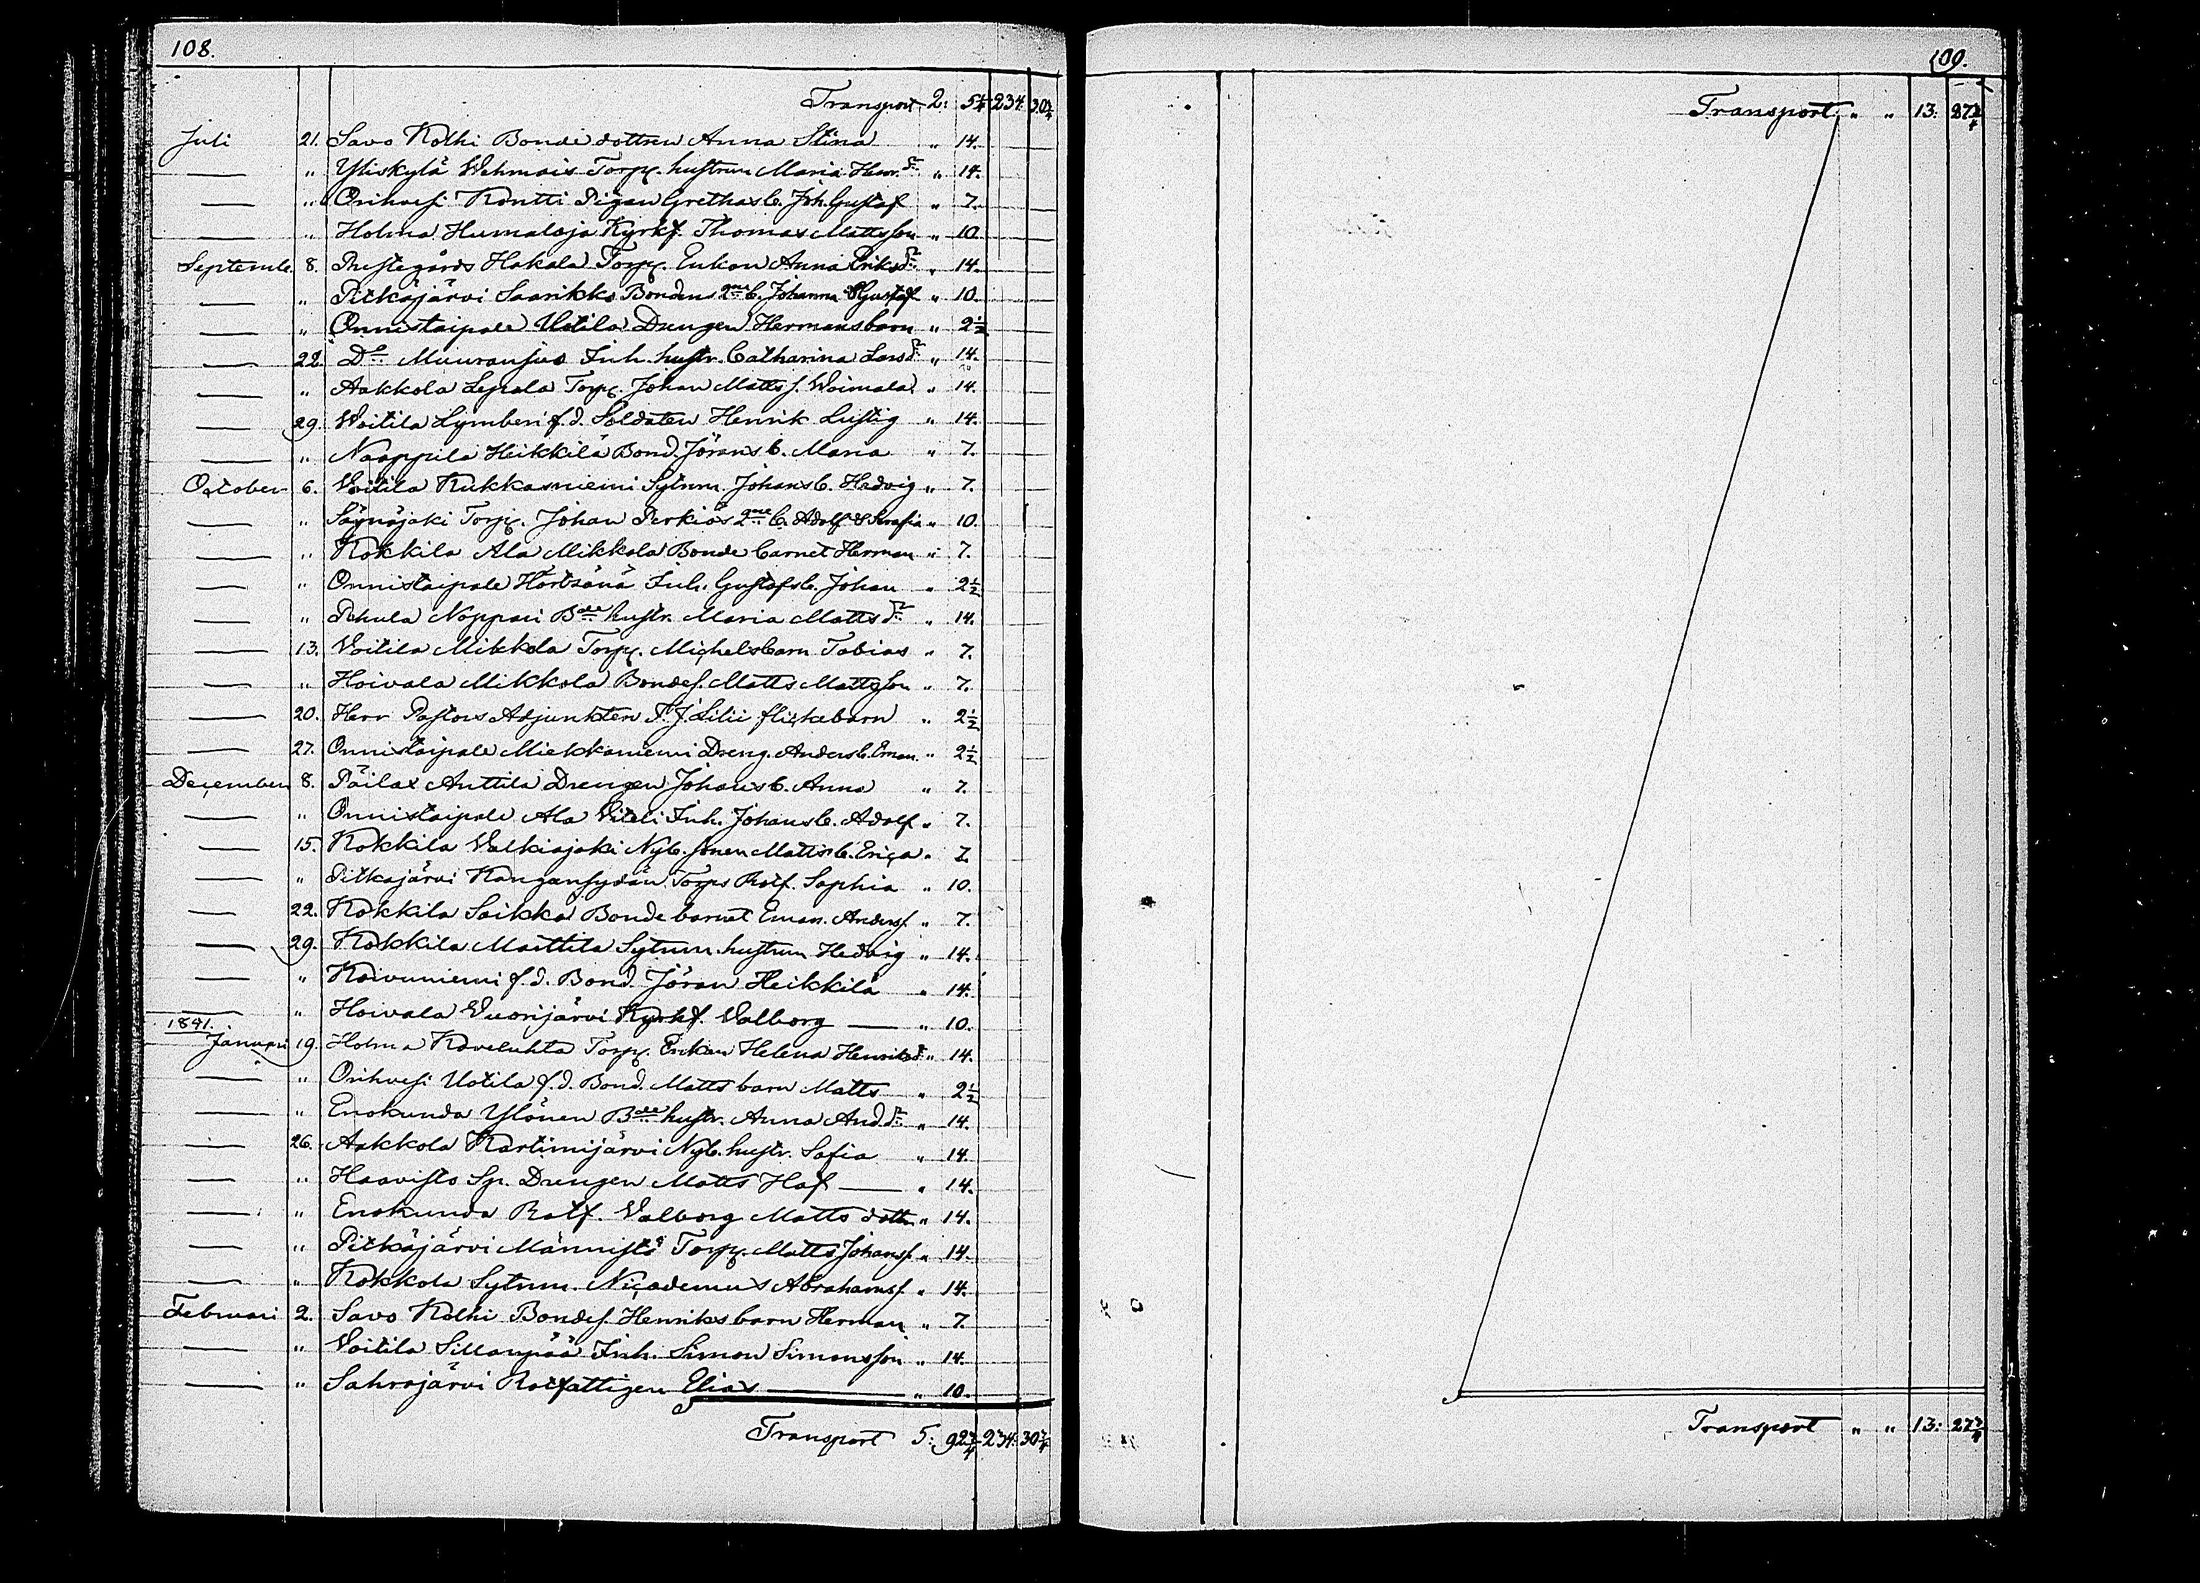 108.
Transport 2: 5¼ 234. 30¾
Juli 21. Savo Kolhi Bonde dottren Anna Stina " 14.
— " Yliskylä Wehmais Torp. hustrun Maria Henr.dr " 14.
— " Orihvesi Kontti Pigan Grethas b. Joh. Gustaf " 7.
— " Holma Humaloja Kyrkf. Thomas Mattsson " 10.
Septembr. 8. Prestegårds Hakala Torp. Enkan Anna Eriksdr " 14.
— " Pitkäjärvi Saarikko Bondens 2ne b. Johanna & Gustaf " 10.
— " Onnistaipale Uotila Drengen Hermans barn " 2½
— 22. Do Muuransuo Inh. hustr. Catharina Larsdr " 14.
— " Aakkola Lepola Torp. Johan Matts s. Woimala " 14.
— 29. Woitila Lymberi f.d. Soldaten Henrik Lustig " 14.
— " Naappila Heikkilä Bond. Jörans b. Maria " 7.
October 6. Voitila Kukkasniemi Sytnm. Johans b. Hedvig " 7.
— " Säynäjoki Torp. Johan Perkiös 2ne b. Adolf & Serafia " 10.
— " Kokkila Ala Mikkola Bonde barnet Herman " 7.
— " Onnistaipale Hörtsänä Inh. Gustafs b. Johan " 2½
— " Pohula Noppari Bde hustr. Maria Mattsdr " 14.
— 13. Voitila Mikkola Torp. Michels barn Tobias " 7.
— " Hoivala Mikkola Bondes. Matts Mattsson " 7.
— 20. Herr Pastors Adjunkten F. J. Lilii flickebarn " 2½
— 27. Onnistaipale Miekkaniemi Dreng. Anders b. Eman. " 2½
December 8. Päilax Anttila Drengen Johans b. Anna " 7.
— " Onnistaipale Ala Viteli Inh. Johans b. Adolf " 7.
— 15. Kokkila Valkiajoki Nyb. sonen Matts b. Erica " 7.
— " Pitkajärvi Kangansydän Torps Rotf. Sophia " 10.
— 22. Kokkila Soikka Bonde barnet Eman. Anderss. " 7.
— 29. Kokkila Marttila Sytnm. hustrun Hedvig " 14.
— " Koivuniemi f.d. Bond. Jöran Heikkilä " 14.
— " Hoivala Vuorijärvi Kyrkf. Valborg — " 10.
1841.
Januari 19. Holma Koveluhta Torp. Enkan Helena Henriksdr " 14.
— " Orihvesi Uotila f.d. Bond. Matts barn Matts " 2½
— " Enokunda Ylönen Bde hustr. Anna And.dr " 14.
— 26. Aakkola Kartimijärvi Nyb. hustr. Sofia " 14.
— " Haavisto Sp. Drengen Matts Haf — " 14.
— " Enokunda Rotf. Valborg Matts dottr " 14.
— " Pitkäjärvi Männistö Torp. Matts Johanss. " 14.
— " Kokkola Sytnm. Nicodemus Abrahamss. " 14.
Februari 2. Savo Kolhi Bondes. Henriks barn Herman " 7.
— " Voitila Sillanpää Inh. Simon Simonsson " 14.
— " Sahrajärvi Rotfattigen Elias — " 10.
Transport 5: 92¾ 234: 30¾
109.
Transport " " 13: 27¾
Transport " " 13: 27¾